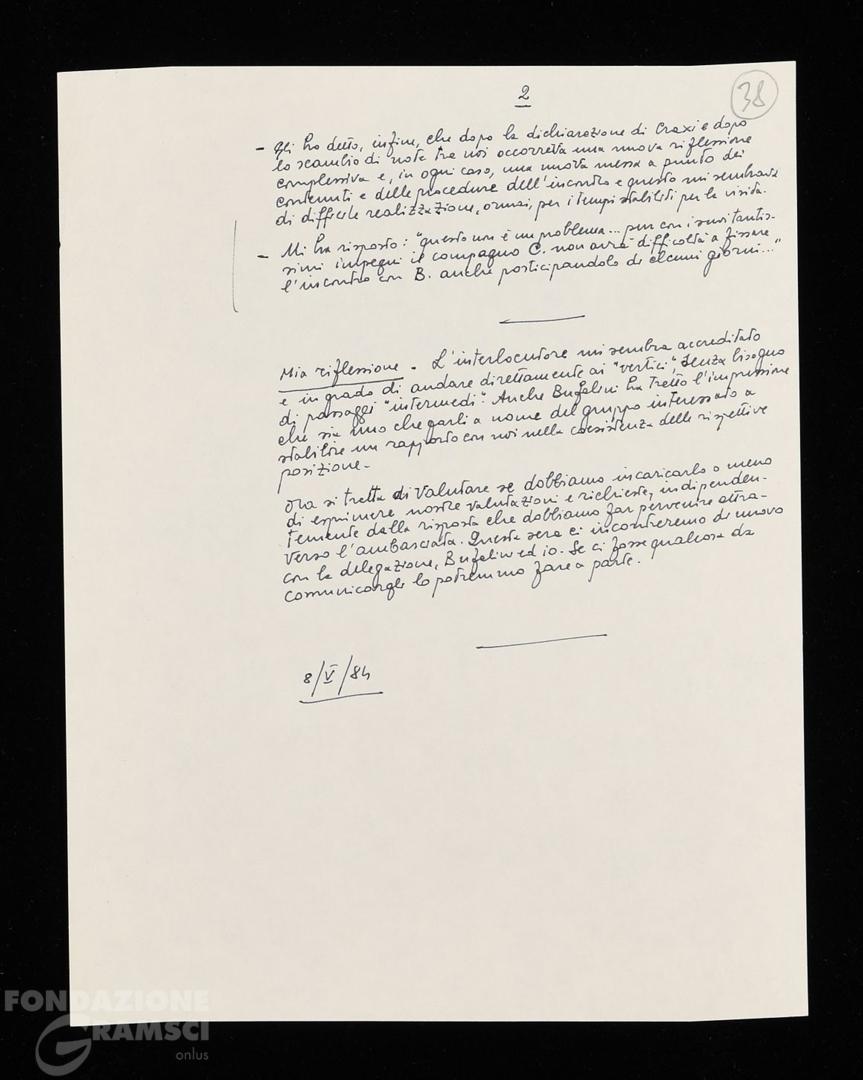 2
38
- Gli ho detto, infine, che dopo la dichiarazione di Craxi e dopo
lo scambio di note tra noi occorreva una nuova riflessione
complessiva e, in ogni caso, una nuova messa a punto dei
contenuti e delle procedure dell'incontro e questo mi sembrava
di difficile realizzazione, ormai, per i tempi stabiliti per la visita.
- Mi ha risposto: "questo non è un problema... pur con i suoi tantis-
simi impegni il compagno C. non avrà difficoltà a fissare
l'incontro con B. anche posticipandolo di alcuni giorni..."
Mia riflessione - L'interlocutore mi sembra accreditato
e in grado di andare direttamente ai "vertici", senza bisogno
di passaggi "intermedi". Anche Bufalini ha tratto l'impressione
che sia uno che parli a nome del gruppo interessato a
stabilire un rapporto con noi nella coesistenza delle rispettive
posizione -
Ora si tratta di valutare se dobbiamo incaricarlo o meno
di esprimere nostre valutazioni e richieste, indipenden-
temente dalla risposta che dobbiamo far pervenire attra-
verso l'ambasciata. Questa sera ci incontreremo di nuovo
con la delegazione, Bufalini ed io. Se ci fosse qualcosa da
comunicargli lo potremmo fare a parte.
8/V/84
FONDAZIONE
GRAMSCI
onlus